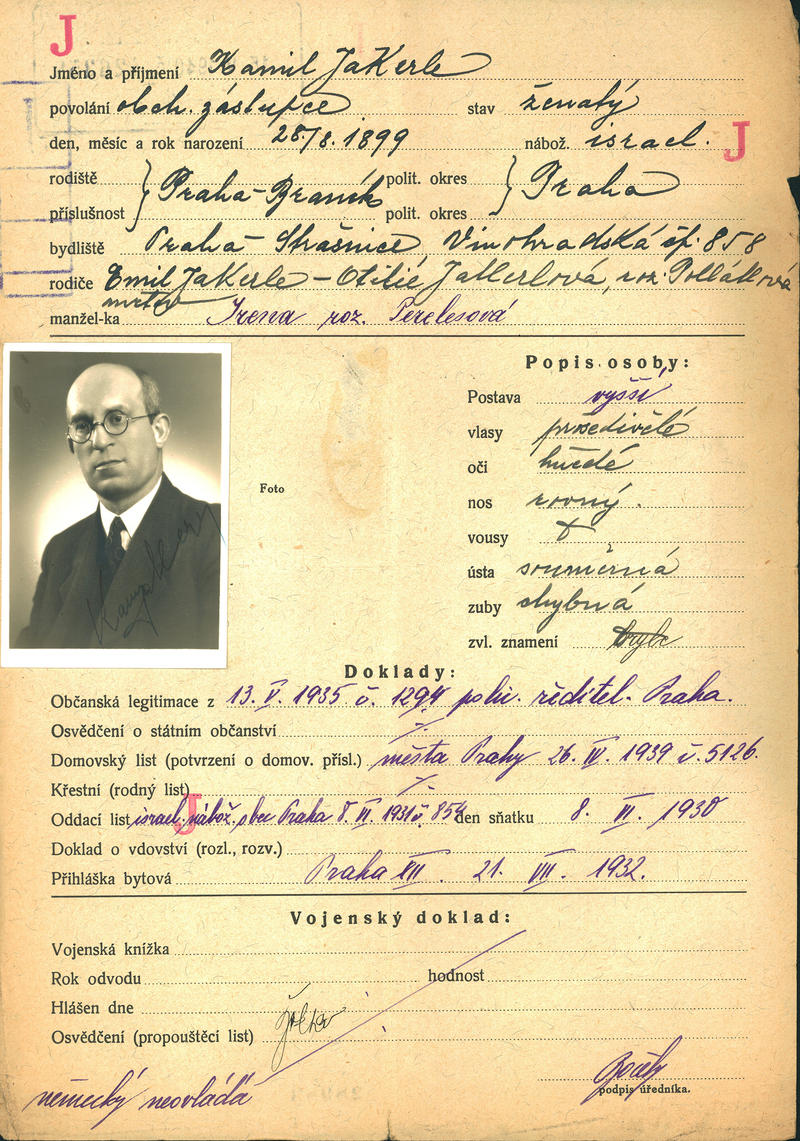 J
Jméno a příjmení Kamil Jakerle
povolání obch. zástupce stav ženatý
den, měsíc a rok narození 28./8. 1899 nábož. israel. J
rodiště Praha-Braník polit. okres Praha
příslušnost polit. okres
bydliště Praha-Strašnice, Vinohradská čp. 858
rodiče Emil Jakerle – Otilie Jakerlová, roz. Polláková
manžel-ka Irena roz. Perelesová
Popis osoby:
Postava vyšší
vlasy prošedivělé
oči hnědé
Foto
nos rovný.
vousy
ústa souměrná
zuby chybná
zvl. znamení
Doklady:
Občanská legitimace z 13. V. 1935 č. 1294 polic. ředitel. Praha.
Osvědčení o státním občanství
Domovský list (potvrzení o domov. přísl.) města Prahy 26. IV. 1939 č. 5126.
Křestní (rodný list)
J
Oddací list israel. nábož. obec Praha 8. VI. 1931 č. 854 den sňatku 8. VI. 1930
Doklad o vdovství (rozl., rozv.)
Přihláška bytová Praha XII. 21. VII. 1932.
Vojenský doklad:
Vojenská knížka
Rok odvodu hodnost
Hlášen dne
Osvědčení (propouštěcí list)
podpis úředníka.
německý neovládá